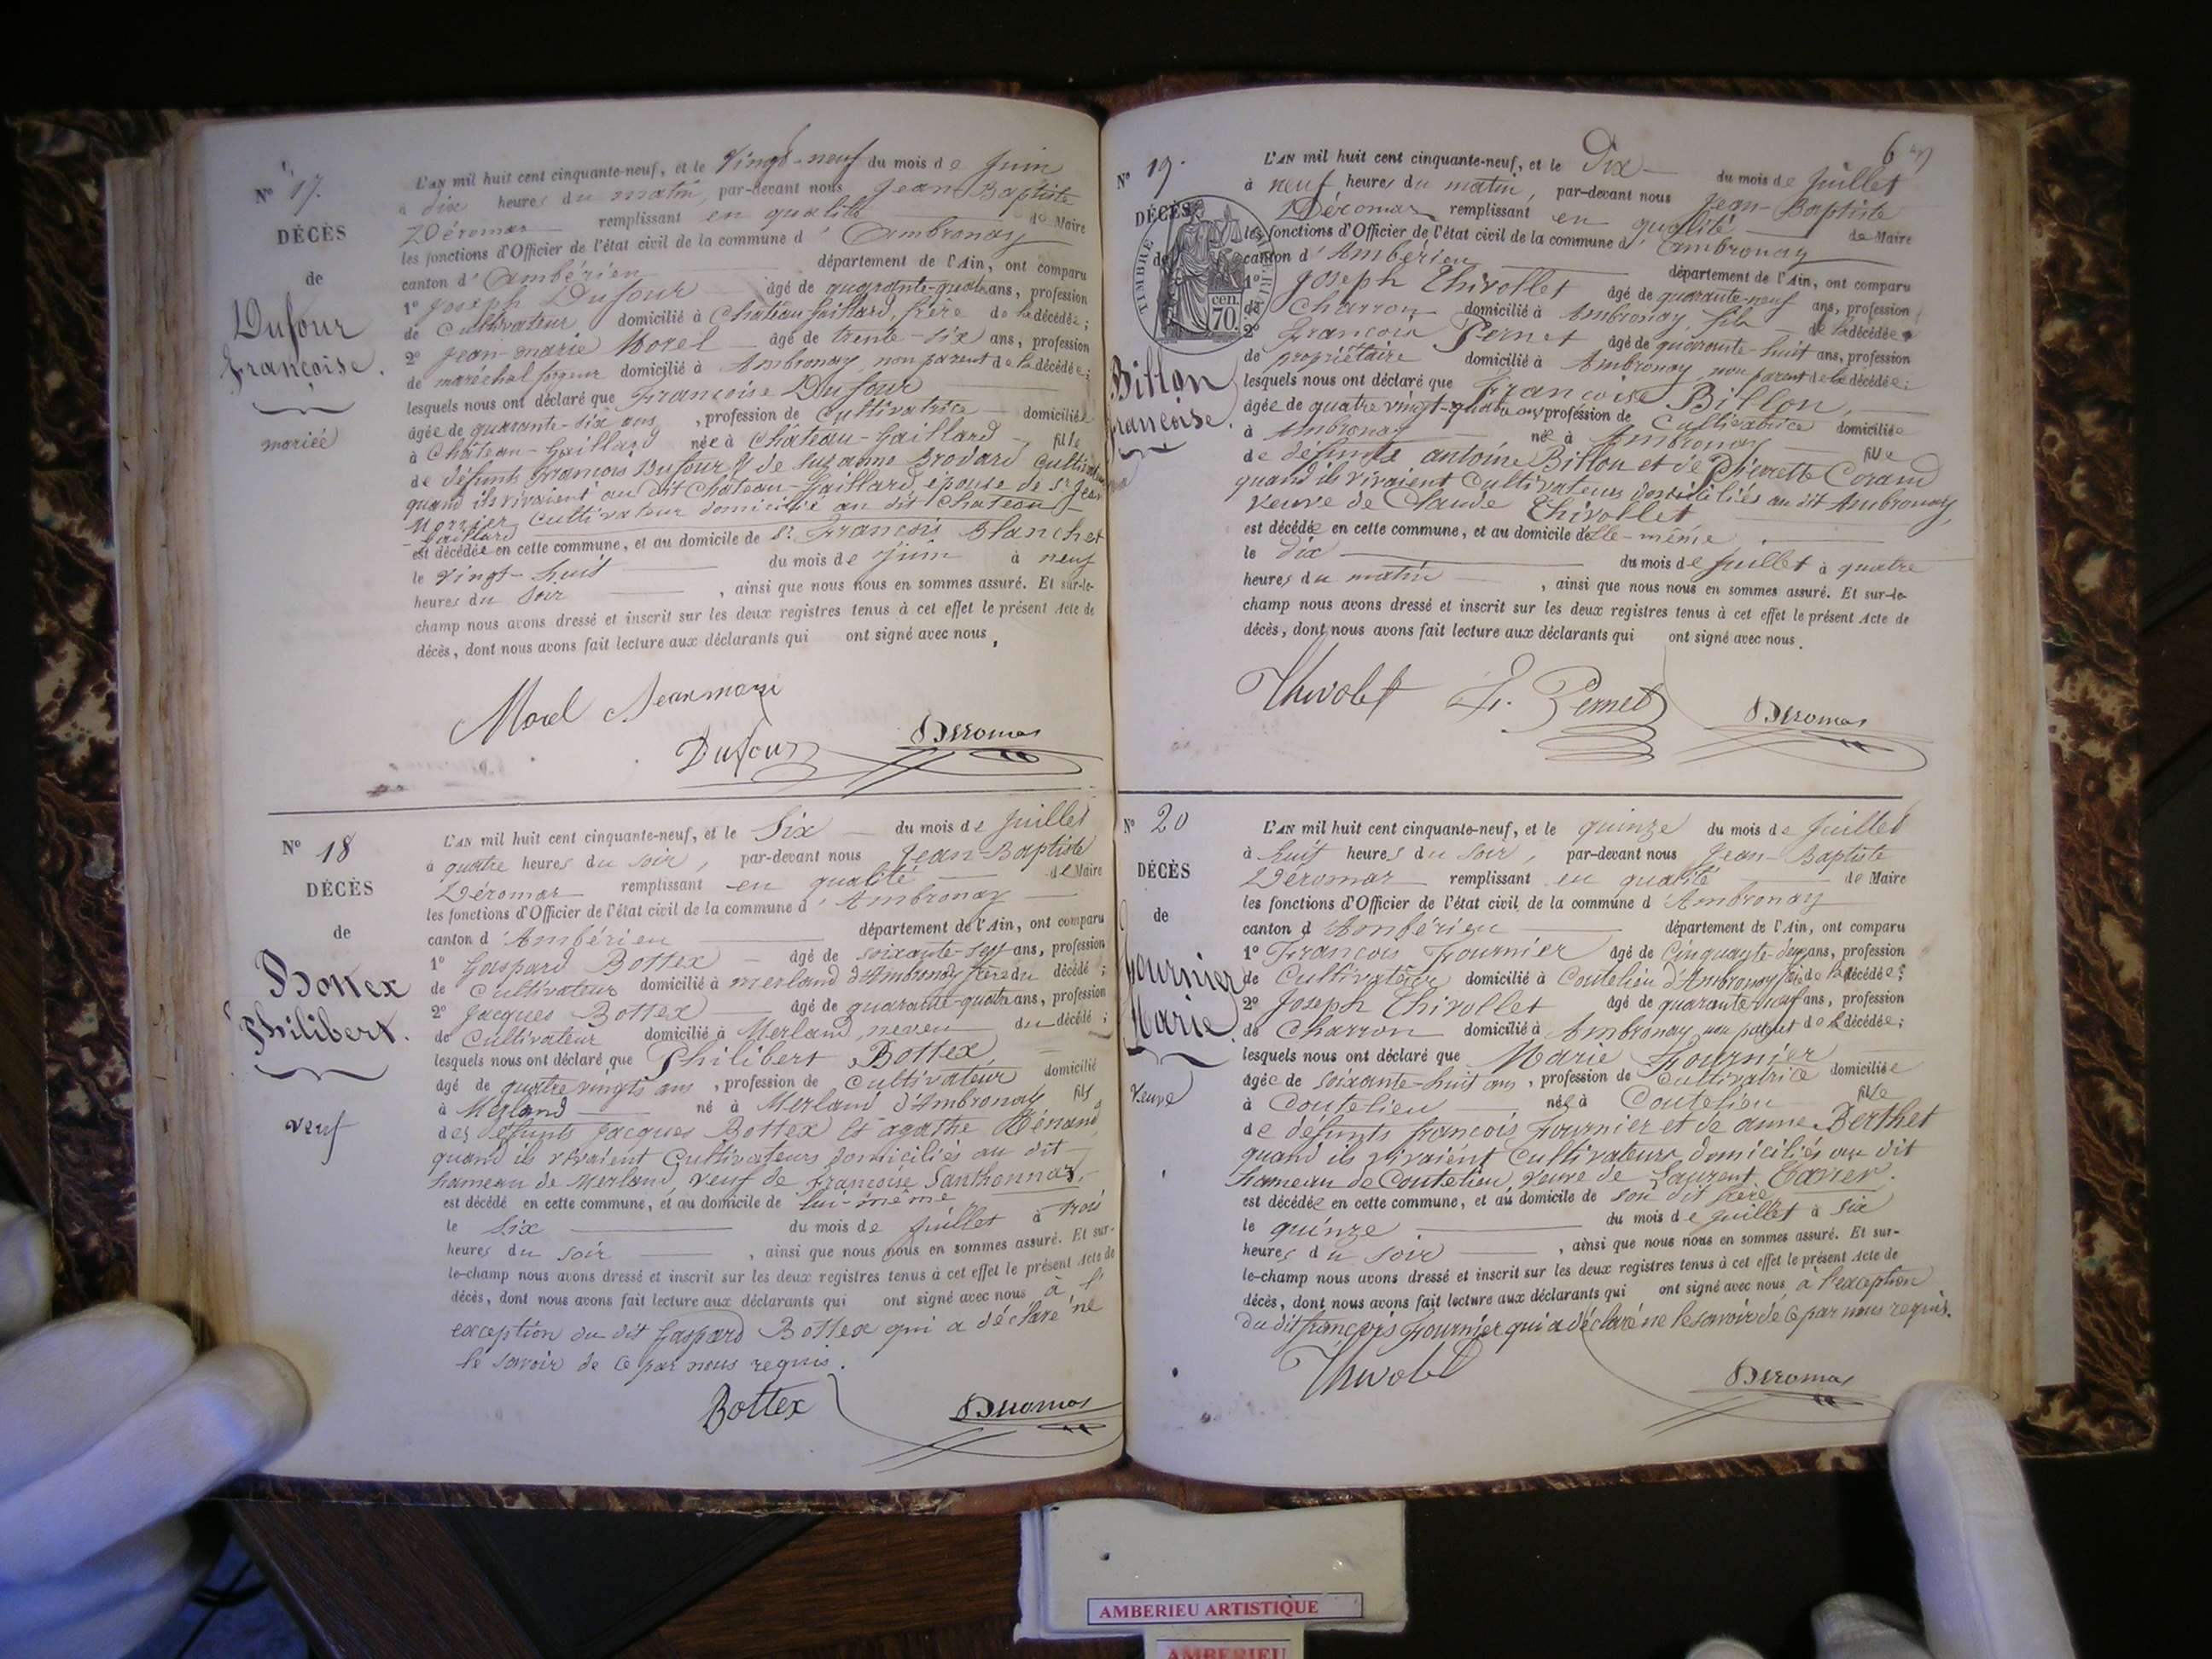 N° 17.
DÉCÈS
de
Dufour
Françoise.
mariée
L'AN mil huit cent cinquante-neuf, et le Vingt-neuf du mois de Juin
à dix heures du matin, par-devant nous Jean Baptiste
Déromas remplissant en qualité de Maire
les fonctions d'Officier de l'état civil de la commune d'Ambronay
canton d'Ambérieu département de l'Ain, ont comparu
1° Joseph Dufour âgé de quarante-quatre ans, profession
de Cultivateur domicilié à Château Gaillard, frère de la décédée;
2° Jean-marie Morel âgé de trente-six ans, profession
de maréchal forgeur domicilié à Ambronay, non parent de la décédée;
lesquels nous ont déclaré que Françoise Dufour
âgée de quarante-six ans, profession de Cultivatrice domiciliée
à Château-Gaillard née à Château-Gaillard fille
de défunts François Dufour & de Suzanne Brodard Cultivateurs
quand ils vivaient au dit Château-Gaillard épouse de Sr Jean
Cultivateur domicilié au dit Château-
Gaillard
est décédée en cette commune, et au domicile de Sr. François Blanchet
le Vingt-huit du mois de Juin à neuf
heures du Soir, ainsi que nous nous en sommes assuré. Et sur-le-
champ nous avons dressé et inscrit sur les deux registres tenus à cet effet le présent Acte de
décès, dont nous avons fait lecture aux déclarants qui ont signé avec nous.
Morel Jeanmari
Dufour Deromas
N° 18
DÉCÈS
de
Bottex
Philibert.
veuf
L'AN mil huit cent cinquante-neuf, et le Six du mois de Juillet
à quatre heures du soir, par-devant nous Jean-Baptiste
Déromas remplissant en qualité de Maire
les fonctions d'Officier de l'état civil de la commune d'Ambronay
canton d'Ambérieu département de l'Ain, ont comparu
1° Gaspard Bottex âgé de soixante-sept ans, profession
de Cultivateur domicilié à merland d'Ambronay frère du décédé;
2° Jacques Bottex âgé de quarante-quatre ans, profession
de Cultivateur domicilié à Merland, neveu du décédé;
lesquels nous ont déclaré que Philibert Bottex,
âgé de quatre vingts ans, profession de Cultivateur domicilié
à Merland né à Merland d'Ambronay fils
des défunts Jacques Bottex et agathe
quand ils vivaient Cultivateurs domiciliés au dit
hameau de Merland, veuf de Françoise Santhonnax,
est décédé en cette commune, et au domicile de lui-même
le Six du mois de Juillet à trois
heures du soir, ainsi que nous nous en sommes assuré. Et sur-
le-champ nous avons dressé et inscrit sur les deux registres tenus à cet effet le présent Acte de
décès, dont nous avons fait lecture aux déclarants qui ont signé avec nous à l'
exception du dit Gaspard Bottex qui a déclaré ne
le savoir de ce par nous requis.
Bottex Deromas
6
N° 19.
DÉCÈS
de
TIMBRE
cen.
70.
Billon
françoise.
L'AN mil huit cent cinquante-neuf, et le Dix du mois de Juillet
à neuf heures du matin, par-devant nous Jean-Baptiste
Déromas remplissant en qualité de Maire
les fonctions d'Officier de l'état civil de la commune d'Ambronay
canton d'Ambérieu département de l'Ain, ont comparu
1° Joseph Thivollet âgé de quarante-neuf ans, profession
de Charron domicilié à Ambronay, fils de la décédée
2° François Pernet âgé de quarante-huit ans, profession
de propriétaire domicilié à Ambronay, non parent de la décédée;
lesquels nous ont déclaré que Françoise Billon,
âgée de quatre vingt-quatre ans, profession de Cultivatrice domiciliée
à Ambronay née à Ambronay fille
de défunts antoine Billon et de Pierrette Corand
quand ils vivaient Cultivateurs domiciliés au dit Ambronay,
veuve de Claude Thivollet
est décédée en cette commune, et au domicile d'elle-même,
le dix du mois de Juillet à quatre
heures du matin, ainsi que nous nous en sommes assuré. Et sur-le-
champ nous avons dressé et inscrit sur les deux registres tenus à cet effet le présent Acte de
décès, dont nous avons fait lecture aux déclarants qui ont signé avec nous.
Thivolet F. Pernet Deromas
N° 20
DÉCÈS
de
Fournier
Marie.
Veuve
L'AN mil huit cent cinquante-neuf, et le quinze du mois de Juillet
à huit heures du soir, par-devant nous Jean-Baptiste
Déromas remplissant en qualité de Maire
les fonctions d'Officier de l'état civil de la commune d'Ambronay
canton d'Ambérieu département de l'Ain, ont comparu
1° François Fournier âgé de Cinquante-deux ans, profession
de Cultivateur domicilié à Coutelieu d'Ambronay frère de la décédée;
2° Joseph Thivollet âgé de quarante-neuf ans, profession
de Charron domicilié à Ambronay, non parent de la décédée;
lesquels nous ont déclaré que Marie Fournier
âgée de soixante-huit ans, profession de Cultivatrice domiciliée
à Coutelieu née à Coutelieu fille
de défunts françois Fournier et de anne Berthet
quand ils vivaient Cultivateurs domiciliés au dit
hameau de Coutelieu, veuve de Laurent
est décédée en cette commune, et au domicile de son dit frère
le quinze du mois de Juillet à six
heures du soir, ainsi que nous nous en sommes assuré. Et sur-
le-champ nous avons dressé et inscrit sur les deux registres tenus à cet effet le présent Acte de
décès, dont nous avons fait lecture aux déclarants qui ont signé avec nous à l'exception
du dit françois Fournier qui a déclaré ne le savoir de ce par nous requis.
Thivolet Deromas
AMBERIEU ARTISTIQUE
AMBERIEU